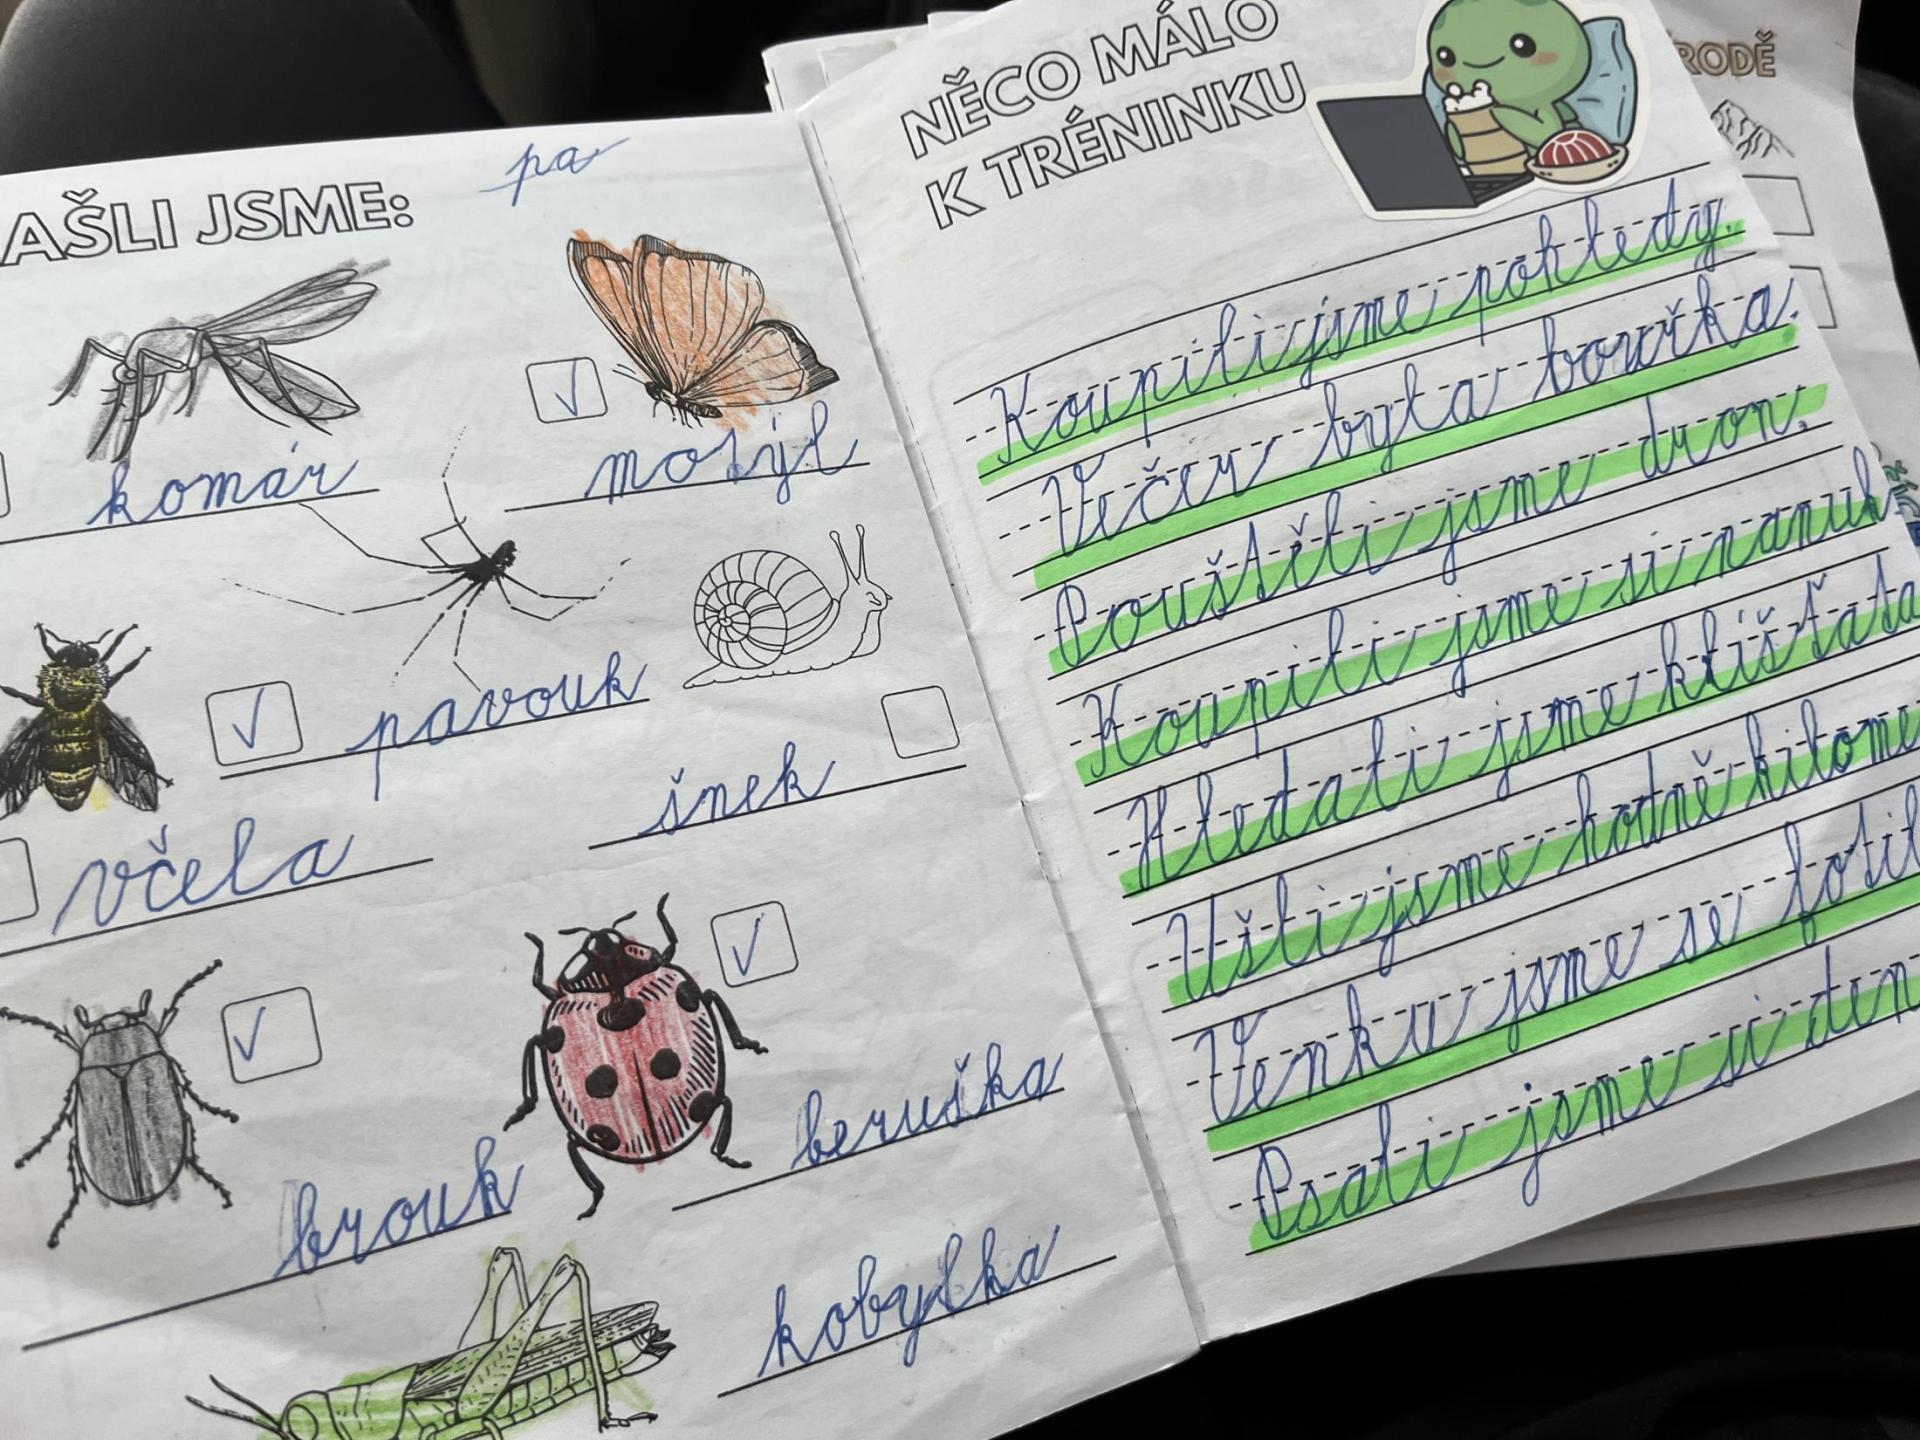 AŠLI JSME:
pa
komár
motýl
pavouk
šnek
včela
brouk
beruška
kobylka
NĚCO MÁLO
K TRÉNINKU
Koupili jsme pohledy.
Večer byla bouřka.
Pouštěli jsme dron.
Koupili jsme si nanuk
Hledali jsme klíšťata
Ušli jsme hodně kilome
Venku jsme se fotil
Psali jsme si den
RODĚ